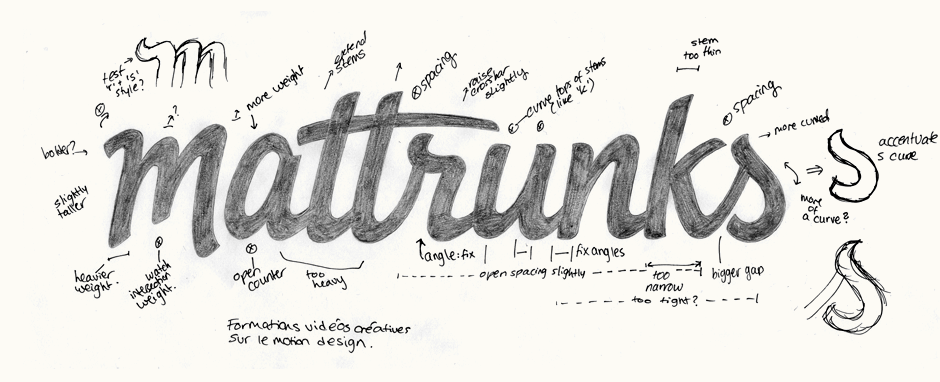 test
style?
?
more weight
extend
stems
spacing
raise
crossbar
slightly
curve tops of stems
(like 'k')
stem
too thin
spacing
more curved
accentuate
bolder?
slightly
taller
mattrunks
more
of
a curve?
heavier
weight.
watch
intersection
weight.
open
counter
too
heavy
angle:fix
fix angles
open spacing slightly
too
narrow
bigger gap
too tight?
Formations vidéos créatives
sur le motion design.